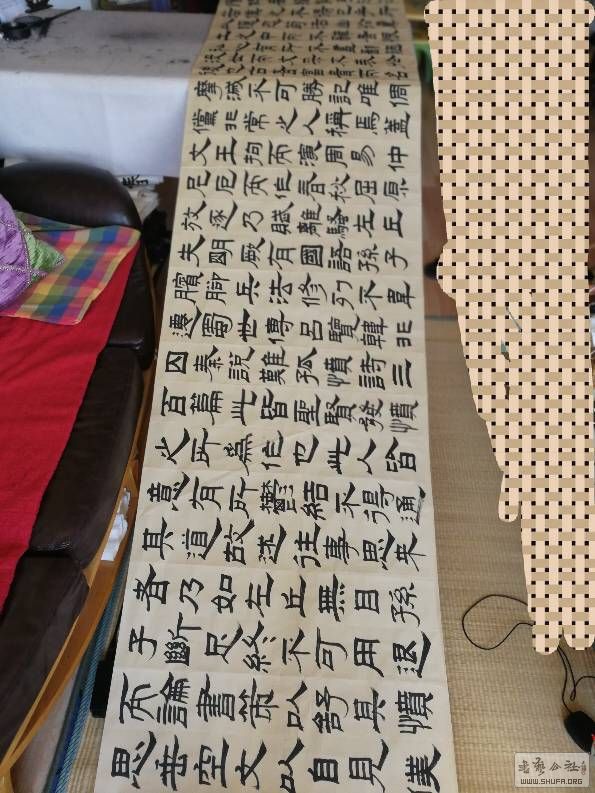 摩滅不可勝記唯倜
儻非常之人稱焉蓋
文王拘而演周易仲
尼厄而作春秋屈原
放逐乃賦離騷左丘
失明厥有國語孫子
臏腳兵法修列不韋
遷蜀世傳呂覽韓非
囚秦說難孤憤詩三
百篇此皆聖賢發憤
之所為作也此人皆
意有所鬱結不得通
其道故述往事思來
者乃如左丘無目孫
子斷足終不可用退
而論書策以舒其憤
思垂空文以自見僕
WWW.SHUFA.ORG